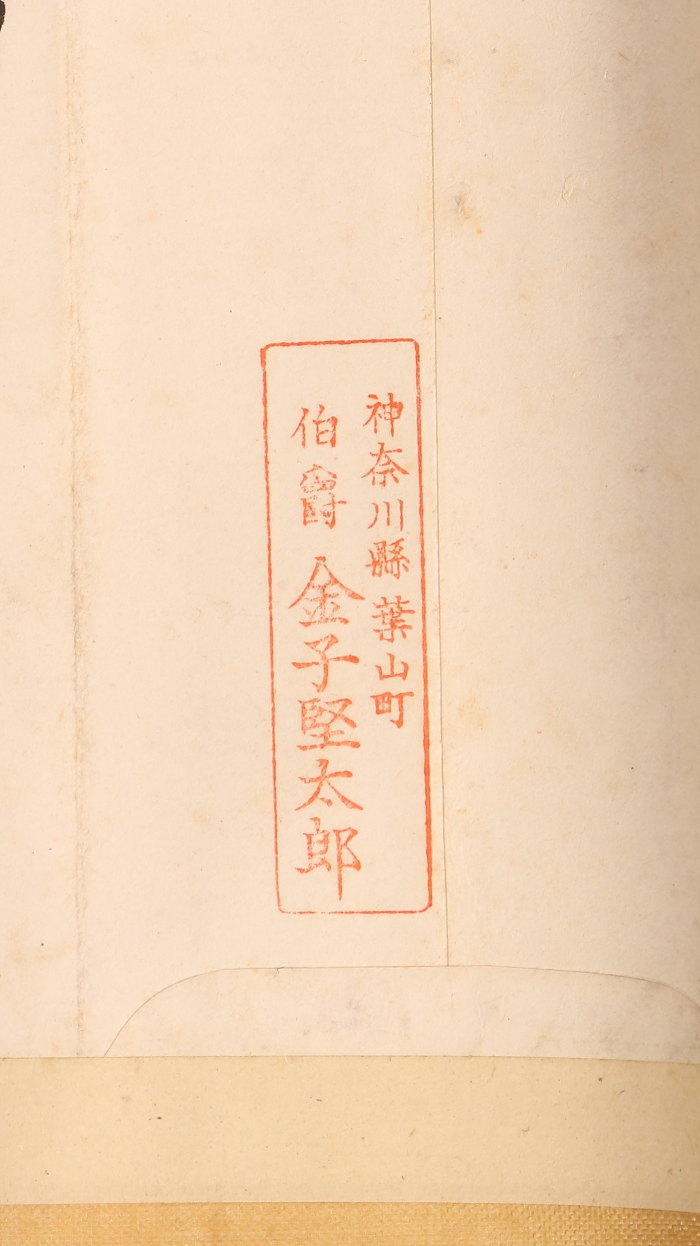 神奈川縣葉山町
伯爵 金子堅太郎